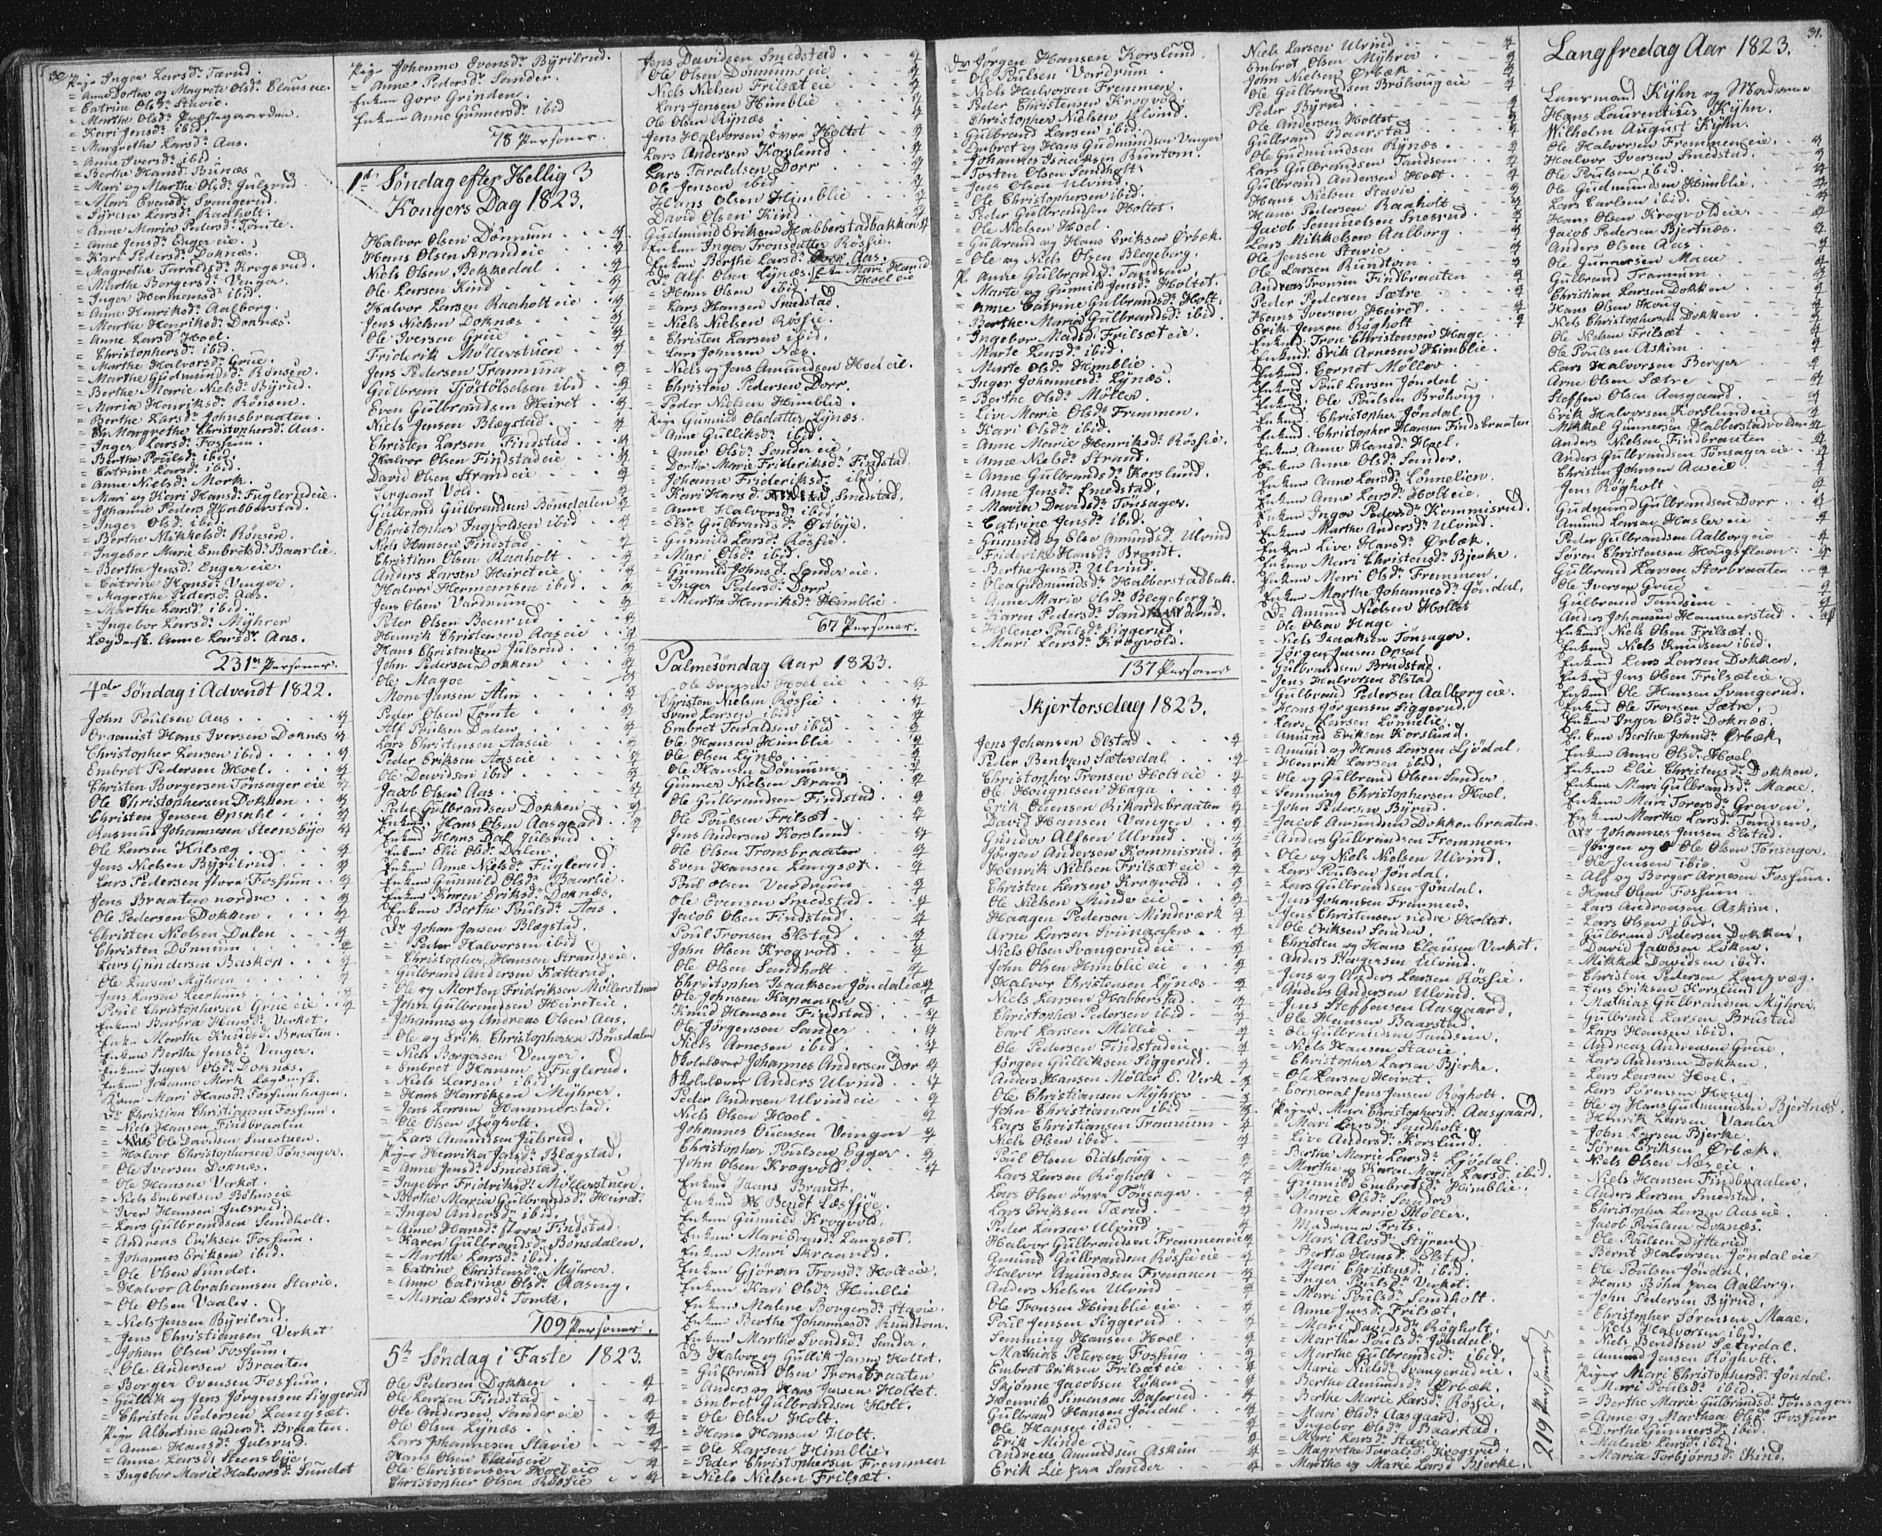 30
Pige Inger Larsd: Tærud.
= Anne Dortea og Magrete Olsd: Clauseie.
= Catrine Olsd: Stavie.
= Marthe Olsd: Præstegaarden.
= Kari Jensd: ibid.
= Margrethe Larsd: Aas.
= Anne Iversd: ibid.
= Berthe Hansd: Bunæs.
= Mari og Marthe Olsd: Julsrud.
= Mari Evensd: Svangerud.
= Syrene Larsd: Raaholt.
= Anne Maria Pedersd: Tømte.
= Anne Jensd: Enger eie.
= Kari Pedersd: Doknæs.
= Magrethe Taraldsd: Krogsrud.
= Marthe Borgersd: Venger.
= Inger Hermansd: ibid.
= Anne Henriksd: Aalborg.
= Marthe Henriksd: Doknæs.
= Anne Larsd: Hoel.
= Christophersd: ibid.
= Marthe Halvorsd: Grue.
= Marthe Gudmundsd: Rønsen.
= Berthe Marie Nielsd: Byrud.
= Maria Henriksd: Rønsen.
= Berthe Larsd: Johnsbraaten.
= Margrethe Christophersd: Aas.
= Inger Larsd: Fossum.
= Berthe Poulsd: ibid.
= Catrine Larsd: ibid.
= Anne Nielsd: Mork.
= Mari og Kari Hansd: Fuglerudeie.
= Johanne Peders Halberstad.
= Inger Olsd: ibid.
= Berthe Mikkelsd: Rønsen.
= Ingebor Marie Embretsd: Baarlie.
= Berthe Jensd: Enger eie.
= Catrine Hansd: Venger.
= Magrethe Pedersd: Aas.
= Marthe Larsd: ibid.
= Ingebor Larsd: Myhrer
Lægdensk. Anne Larsd: Aas.
231 Personer.
4de Søndag i Advendt 1822.
John Poulsen Aas
Organist Hans Iversen Doknes
Christopher Larsen ibid
Embret Pedersen Hoel
Christen Borgersen Tønsager eie
Ole Christophersen Dokken
Christen Jensen Opsahl
Rasmus Johannesen Steensbye
Ole Larsen Kilsæg
Jens Nielsen Byrilrud
Lars Pedersen store Fossum
Jens Braaten nordre
Ole Pedersen Dokken
Christen Nielsen Dalen
Christen Dønnum
Lars Gundersen Baskop
Ole Larsen Myhren
Jens Larsen Leerhuus
Poul Christophersen Grue eie
Enken Barbra Hansd: Verket.
Enken Marthe Knudsd: Braaten.
Enken Berthe Jensd: Venger.
Enken Inger Olsd: Doknæs.
Enken Johanne Mork Lægdensk.
Kone Mari Hansd: Fossumhagen.
Dr Christian Christiansen Fossum.
= Niels Hansen Findbraaten
= Ole Davidsen Smestuen.
= Halvor Christophersen Tønsager.
= Ole Iversen Doknæs.
= Ole Hansen Verket.
= Niels Embretsen Bøhnseie
= Iver Hansen Julsrud.
= Lars Gulbrandsen Sandholt.
= Andreas Eriksen Fossum.
= Johannes Eriksen ibid.
= Ole Olsen Sundet.
= Halvor Abrahamsen Stavie.
= Ole Olsen Vaaler.
= Niels Jensen Byrilrud.
= Jens Christiansen Verket
= Johan Olsen Fossum.
= Ole Andersen Braaten
= Borger Evensen Fossum.
= Gullik og Jens Jørgensen Siggerud
= Christen Pedersen Langsæt.
Pige Albertine Andersd: Braaten.
= Anne Hansd: Julsrud.
= Anne Larsd: Steensbye.
= Ingebor Marie Halvorsd: Sundet
Pige Johanne Evensd: Byrilrud.
= Anne Pedersd: Sander.
Enken Goro Grinden.
Enken Anne Gunnersd: ibid
78 Personer.
1ste Søndag efter Hellig 3
Kongers Dag 1823.
Halvor Olsen Dønnum
Hans Olsen Strandeie
Niels Olsen Bekkedal
Ole Larsen Kind
Halvor Larsen Raaholt eie
Jens Nielsen Doknæs
Ole Iversen Grue
Friderik Møllerstuen
Jens Pedersen Trammen
Gulbran Tjøstølsen ibid
Even Gulbrandsen Heiret
Niels Jensen Blægstad
Christen Larsen Findstad
Halvor Olsen Findstadeie
David Olsen Strandeie
Sergeant Vold
Gulbrand Gulbrandsen Bønsdalen
Christopher Ingvoldsen ibid
Niels Hansen Findstad
Christian Olsen Raaholt
Anders Larsen Heireteie
Halvor Hermansen ibid
Jens Olsen Vardrum
Peter Olsen Boenrud
Henrik Christensen Aaseie
Hans Christensen Julsrud
John Pedersen Dokken
Ole Magoe
Mons Jansen Alm
Peder Olsen Tømte
Alf Poulsen Dalen
Lars Christensen Aaseie
Peder Eriksen Aaseie
Ole Davidsen ibid
Jacob Olsen Aas
Peder Gulbrandsen Dokken
Enkem Hans Olsen Aasgaard
Enkem Hans Dal Julsrud.
Enken Elie Olsd: Dalen.
Enken Anne Nielsd: Fuglerud.
Enken Gunnild Olsd: Baarlie.
Enken Karen Eriksd: Doknæs.
Enken Berthe Poulsd: Aas.
Dr Johan Jansen Blægstad.
= Peter Halvorsen ibid
= Christopher Hansen Strandseie.
= Gulbrand Andersen Katterud.
= Ole og Morten Fridriksen Møllerstuen
= John Gulbrandsen Heireteie.
= Johannes og Andreas Olsen Aas.
= Ole og Erik Christophersen Bønsdalen
= Niels Borgersen Venger.
= Embret Hansen Fuglerud.
= Niels Larsen ibid.
= Hans Henriksen Myhrer.
= Jens Larsen Hammerstad.
= Ole Olsen Røgholt.
= Lars Amundsen Julsrud.
Piger Henrika Jensd: Blægstad.
= Anne Jensd: Smedstad.
= Ingebor Fridriksd: Møllerstuen.
= Berthe Maria Gulbrandsd: Heiret
= Inger Andersd: ibid.
= Anne Hansd: store Findstad.
= Karen Gulbrandsd: Bønsdalen.
= Marthe Larsd: ibid.
= Catrine Christensd: Myhrer.
= Anne Catrine Olsd: Aasing.
= Maria Larsd: Tomte.
109 Personer.
5te Søndag i Faste 1823.
Ole Pedersen Dokken
Ole Larsen Findstad
Ole Andersen Sander eie
Ole Olsen Lynæs
Lars Johannesen Stavie
Hans Olsen Clausen
Ole Christensen Hoel eie
Christopher Olsen Røssie
Jens Davidsen Smedstad
Ole Olsen Dønnum eie
Niels Nielsen Frilsæt eie
Lars Jensen Himblie
Ole Olsen Rynæs
Jens Halvorsen øvre Holtet
Lars Andersen Korslund
Lars Taraldsen Dorr
Ole Jensen ibid
Hans Olsen Himblie
David Olsen Kind
Gudmund Eriksen Habberstadbakken
Enken Inger Tronsdatter Røssie.
Enken Berthe Larsd: Aas.
Dr Alf Olsen Lynæs. Enken Mari Hansd: Hoel eie
= Hans Olsen ibid.
= Lars Hansen Smedstad.
= Niels Nielsen Røssie.
= Christen Larsen ibid.
= Lars Johnsen Næs.
= Niels og Jens Amundsen Hoel eie.
= Christen Pedersen Dorr.
= Peder Nielsen Himblie.
Piger Gunnild Olsdatter Lynæs.
= Anne Gulliksd: ibid.
= Anne Olsd: Sander eie
= Dorte Marie Frideriksd: Findstad.
= Johanne Frideriksd: ibid.
= Kari Hansd: Smedstad.
= Anne Halvorsd: ibid.
= Else Gulbrandsd: Østbye.
= Gunnild Larsd: Røssie.
= Mari Olsd: ibid.
= Gunnild Johnsd: Sander eie.
= Inger Pedersd: Dorr
= Marthe Henriksd: Himblie
67 Personer.
Palmesöndag Aar 1823.
Ole Evensen Hoel eie
Christen Nielsen Røssie
Svend Larsen ibid
Embret Taraldsen ibid
Ole Hansen Himblie
Ole Olsen Lynæs
Ole Hansen Dønnum
Gunner Nielsen Strand
Ole Gulbrandsen Findstad
Ole Poulsen Frilsæt
Jens Andersen Korslund
Ole Olsen Tronsbraaten
Even Hansen Langsæt
Poul Olsen Vardrum
Ole Evensen Smedstad
Jacob Olsen Findstad
Poul Tronsen Elstad
John Olsen Krogvold
Ole Olsen Sandholt
Christopher Isaaksen Jøndaleie
Ole Johnsen Kapanger
Knud Hansen Findstad
Ole Jørgensen Sander
Niels Arnesen ibid
Skolelærer Johannes Andersen Dor
Skolelærer Anders Ulvind
Peder Andersen Ulvind eie
Niels Olsen Hoel
Johannes Ouensen Venger
Christopher Poulsen Egger
John Olsen Krogvold
Enkem Hans Brandt.
Enkem Bendt Læssøe.
Enken Gunnild Krogvold.
Enken Mari Evensd: Langsæt.
Enken Mari Skraaned.
Enken Gjøran Tronsd: Holt eie.
Enken Kari Olsd: Himblie
Enken Malene Borgersd: Stavie.
Enken Berthe Johannesd: Rundtom.
Enken Marthe Svendsd: Sander.
Dr Halvor og Gullik Jensen Holtet.
= Gulbrand Olsen Tronsbraaten
= Anders og Hans Jensen Holtet.
= Embret Gulbrandsen Holt.
= Ole Olsen Holt.
= Hans Hansen Holt.
= Ole Larsen Himblie.
= Peder Christophersen Fremmen
= Niels Nielsen Frilsæt.
Dr Jørgen Hansen Korslund.
= Ole Poulsen Vardrum.
= Niels Halvorsen Fremmen.
= Peder Christensen Krogvold.
= Christopher Nielsen Ulvind.
= Gulbrand Larsen ibid.
= Embret og Hans Gudmundsen Venger
= Johannes Isaaksen Runtom.
= Tosten Olsen Sandholt
= Jens Olsen Ulvind.
= Ole Christophersen ibid.
= Peder Gulbrandsen Holtet.
= Ole Nielsen Hoel.
= Gulbrand og Hans Eriksen Ørbæk.
= Ole og Niels Olsen Blegeberg.
P. Anne Gulbrandsd: Tandsem
= Marte og Gunnild Jensd: Holtet.
= Anne Catrine Gulbrandsd: Holt.
= Berthe Maria Gulbrandsd: ibid.
= Ingebor Madsd: Frilsæt eie.
= Marte Larsd: ibid.
= Marte Olsd: Himblie.
= Inger Johannesd: Lynæs.
= Berthe Olsd: Møller.
= Live Marie Olsd: Fremmen.
= Kari Olsd: ibid.
= Anne Marie Henriksd: Røssie.
= Anne Nielsd: Strand.
= Anne Gulbrandsd: Korslund.
= Anne Jensd: Smedstad.
= Maria Davidsd: Tønsager.
= Catrine Jensd: ibid.
= Gunnild og Else Amundsd: Ulvind
= Friderike Hansd: Brandt.
= Berthe Jensd: Ulvind.
= Olea Gudmundsd: Halberstadbak.
= Anne Marie Olsd: Blegeberg.
= Karen Pedersd: Sandholt.
= Helene Poulsd: Siggerud.
= Mari Larsd: Krogvold.
137 Personer.
Skjertorsdag 1823.
Jens Johansen Elstad
Peder Bentzen Sætevdal
Christopher Tronsen Holt eie
Ole Hougnesen Haga
Erik Ouensen Rikardsbraaten
David Hansen Vangen
Gunder Alfsen Ulvind
Jørgen Andersen Kommisrud
Henrik Nielsen Frilsæt eie
Christen Larsen Krogvold
Ole Nielsen Minde eie
Haagen Pederson Mindeværk
Arne Larsen Svenngasen
Niels Olsen Svangerud eie
John Olsen Himblie eie
Halvor Christensen Lynæs
Niels Larsen Habberstad
Christopher Pedersen ibid
Carl Larsen Millie
Ole Pedersen Findstadeie
Jørgen Gulliksen Siggerud
Anders Hansen Møller E. Verk
Ole Christiansen Myhrer
John Christiansen ibid
Lars Christiansen Trammum
Niels Olsen ibid
Poul Olsen Eidshoug
Lars Larsen Røgholt
Lars Olsen øvre Tønsager
Lars Eriksen Tærud
Peder Larsen Ulvind
Halvor Gulbrandsen Fremmeneie
Amund Gulbrandsen Røssie eie
Halvor Amundsen Fremmen
Anders Nielsen Ulvind
Ole Tronsen Himblie eie
Poul Jensen Siggerud
Semming Hansen Hoel
Mathias Petersen Fossum
Embret Eriksen Frilsæt eie
Skjønne Jacobsen Løken
Henrik Simensen Baserud
Gulbrand Hansen Jøndal
Ole Hansen ibid
Erik Minde
Andreas Amundsen Askim
Erik Lie fra Sander
Niels Larsen Ulvind
Embret Olsen Myhrer
John Nielsen Ørbæk
Ole Gulbrandsen Brøhoug eie
Peder Byrud
Ole Andersen Holtet
Gulbran Baarstad
Ole Gudmundsen Rynæs
Lars Gulbrandsen Tandsem
Gulbrand Andersen Holt
Hans Nielsen Stavie
Hans Pedersen Raaholt
Jacob Semmelsen Snesrud
Lars Mikkelsen Aalborg
Ole Jensen Stavie
Ole Larsen Rundtom
Andreas Tronsen Findbraaten
Peder Pedersen Sætre
Hans Iversen Heiret
Erik Jensen Røgholt
Enkem: Tron Christensen Hage.
Enkem: Erik Arnesen Himblie.
Enkem: Cornet Møller
Enkem: Poul Larsen Jøndal
Enkem: Ole Poulsen Brøhoug
Enkem: Christopher Jøndal
Enkem: Christopher Hansen Findsbraaten
Enken Anne Hansd: Hoel.
Enken Anne Olsd: Sander.
Enken Anne Larsd: Lønnelien.
Enken Anne Larsd: Holt eie.
Enken Inger Pedersd: Kommisrud.
Enken Marthe Andersd: Ulvind.
Enken Live Hansd: Ørbæk.
Enken Mari Christensd: Bjerke.
Enken Mari Olsd: Fremmen.
Enken Marthe Johannesd: Jøndal.
Dr Amund Nielsen Holtet
= Ole Olsen Hage.
= Niels Isaaksen Tønsager.
= Jørgen Jensen Opsal
= Gulbrandsen Brustad.
= Jens Halvorsen Elstad
= Gulbrand Pedersen Aalborg eie.
= Hans Jørgensen Siggerud.
= Lars Larsen Lønnelie.
= Amund Eriksen Korslund.
= Amund og Hans Larsen Ljødal.
= Henrik Larsen ibid.
= Ole og Gulbrand Olsen Sander
= Semming Christophersen Hoel.
= John Pedersen Byrud.
= Jacob Amundsen Dokkenbraaten
= Anders Gulbrandsen Fremmen.
= Ole og Niels Nielsen Ulvind.
= Lars Poulsen Jøndal.
= Lars Gulbrandsen Jøndal.
= Jens Johansen Fremmen.
= Jens Christensen nedre Holtet.
= Ole Eriksen Sander.
= Christen og Hans Clausen Verket.
= Anders Borgersen Ulvind.
= Jens og Anders Larsen Røssie
= Anders Andersen Ulvind.
= Jens Steffensen Aasgaard.
= Ole Hansen Baarstad.
= Ole Gulbrandsen Tandsem.
= Niels Hansen Stavie
= Christopher Larsen Bjerke.
= Ole Larsen Heiret.
= Corporal Jens Jensen Røgholt.
Piger Mari Christophersd: Aasgaard.
= Mari Larsd: Sandholt.
= Live Andersd: Korslund.
= Berthe Marie Larsd: Ljødal.
= Marthe og Karen Mari Larsd: ibid.
= Gunnild Embretsd: Himblie.
= Marie Olsd: Sander
= Anne Marie Møller.
= Madamme Frits.
= Mari Alvsd: Styren
= Berthe Hansd: Elstad.
= Mari Christensd: ibid.
= Inger Poulsd: Verket.
= Mari Poulsd: Sandholt.
= Anne Jensd: Frilsæt.
= Mari Davidsd: Røgholt.
= Marthe Poulsd: Jøndal.
= Marthe Gulbrandsd: ibid.
= Marie Nielsd: Svangerudeie.
= Berthe Amundsd: Ørbæk.
= Berthe Marie Larsd: Røssie.
= Mari Olsd: Aasgaard.
= Ingebor Olsd: Baarstad.
= Mari Larsd: Stavie
= Magrethe Taraldsd: Krogsrud.
= Marthe og Marie Larsd: Bjerke.
219 Personer
31.
Langfredag Aar 1823.
Lensmand Kyhn og Madamme
Hans Laurentius Kyhn.
Wilhelm August Kyhn.
Ole Halvorsen Fremmen eie.
Halvor Iversen Smedstad.
Ole Poulsen ibid.
Ole Gudmundsen Himblie.
Lars Carlsen ibid.
Hans Olsen Krogvoldeie.
Jacob Pedersen Bjertnæs.
Anders Olsen Aas.
Ole Gunnersen Maae
Gulbrand Trammum
Christian Larsen Dokken
Hans Olsen Houg
Niels Christophersen Dokken
Ole Nielsen Frilsæt
Ole Poulsen Askim
Lars Halvorsen Berger
Arne Olsen Sætre
Steffen Olsen Aasgaard
Erik Halvorsen Korslundeie
Mikkel Gunnersen Halberstadvolden
Anders Nielsen Findbraaten
Anders Gulbrandsen Tønsager eie
Christen Johnsen Aaseie
Jens Røgholt
Gudmund Gulbrandsen Dorr
Amund Larsen Hasler eie
Peder Gulbrandsen Aalborg eie
Søren Christensen Hougsfloen
Gulbrand Larsen Storbraaten
Ole Iversen Grue
Gulbrand Tandsem
Anders Johansen Hammerstad
Enkem Niels Olsen Frilsæt.
Enkem Niels Knudsen ibid.
Enkem Lars Larsen Dokken.
Enkem Jens Olsen Frilsæteie.
Enkem Ole Hansen Svangerud.
Enkem Ole Tronsen Sætre.
Enken Inger Olsd: Doknæs.
Enken Berthe Johnsd: Ørbæk
Enken Anne Olsd: Hoel
Enken Elie Christensd: Dokken.
Enken Mari Gulbrandsd: Maae.
Enken Mari Toresd: Graven.
Enken Marthe Larsd: Tandsem.
Dr Johannes Jensen Elstad.
= Jørgen og Ole Olsen Tønsager.
= Ole Jensen ibid.
= Alf og Borger Arnesen Fossum.
= Hans Olsen Fossum
= Lars Andreasen Askim.
= Lars Olsen ibid.
= Gulbrand Pedersen Dokken.
= David Jacobsen Løken.
= Mikkel Davidsen ibid.
= Christen Pedersen Langvæg.
= Jens Eriksen Korslund
= Mathias Gulbrandsen Myhrer
= Gulbrand Larsen Brustad
= Lars Hansen ibid.
= Andreas Andreasen Grue.
= Lars Andersen Dokken.
= Lars Larsen Hoel.
= Lars Sørensen Houg.
= Ole og Hans Gudmundsen Bjertnæs
= Henrik Larsen Vaaler
= John Larsen Bjerke.
= Søren Eriksen Ørbæk.
= Niels Olsen Næseie.
= Niels Hansen Findbraaten.
= Anders Larsen Smedstad.
= Christopher Larsen Aaseie.
= Jacob Poulsen Doknæs.
= Ole Poulsen Dytterud
= Bernt Halvorsen Jøndal eie
= Ole Poulsen Jøndal.
= Hans Bøhn fra Aalborg.
= John Pedersen Byrud.
= Christopher Sørensen Maae.
= Niels Halvorsen ibid.
= Niels Bendtsen Sæterdal.
= Amund Jensen Røgholt.
Piger Mari Christophersd: Jøndal.
= Mari Poulsd: ibid.
= Berthe Marie Gulbrandsd: Tønsager
= Anne og Marthea Olsd: Fossum
= Dorthe Gunnersd: ibid.
= Malene Larsd: ibid.
= Maria Torbjørnsd: Kind.